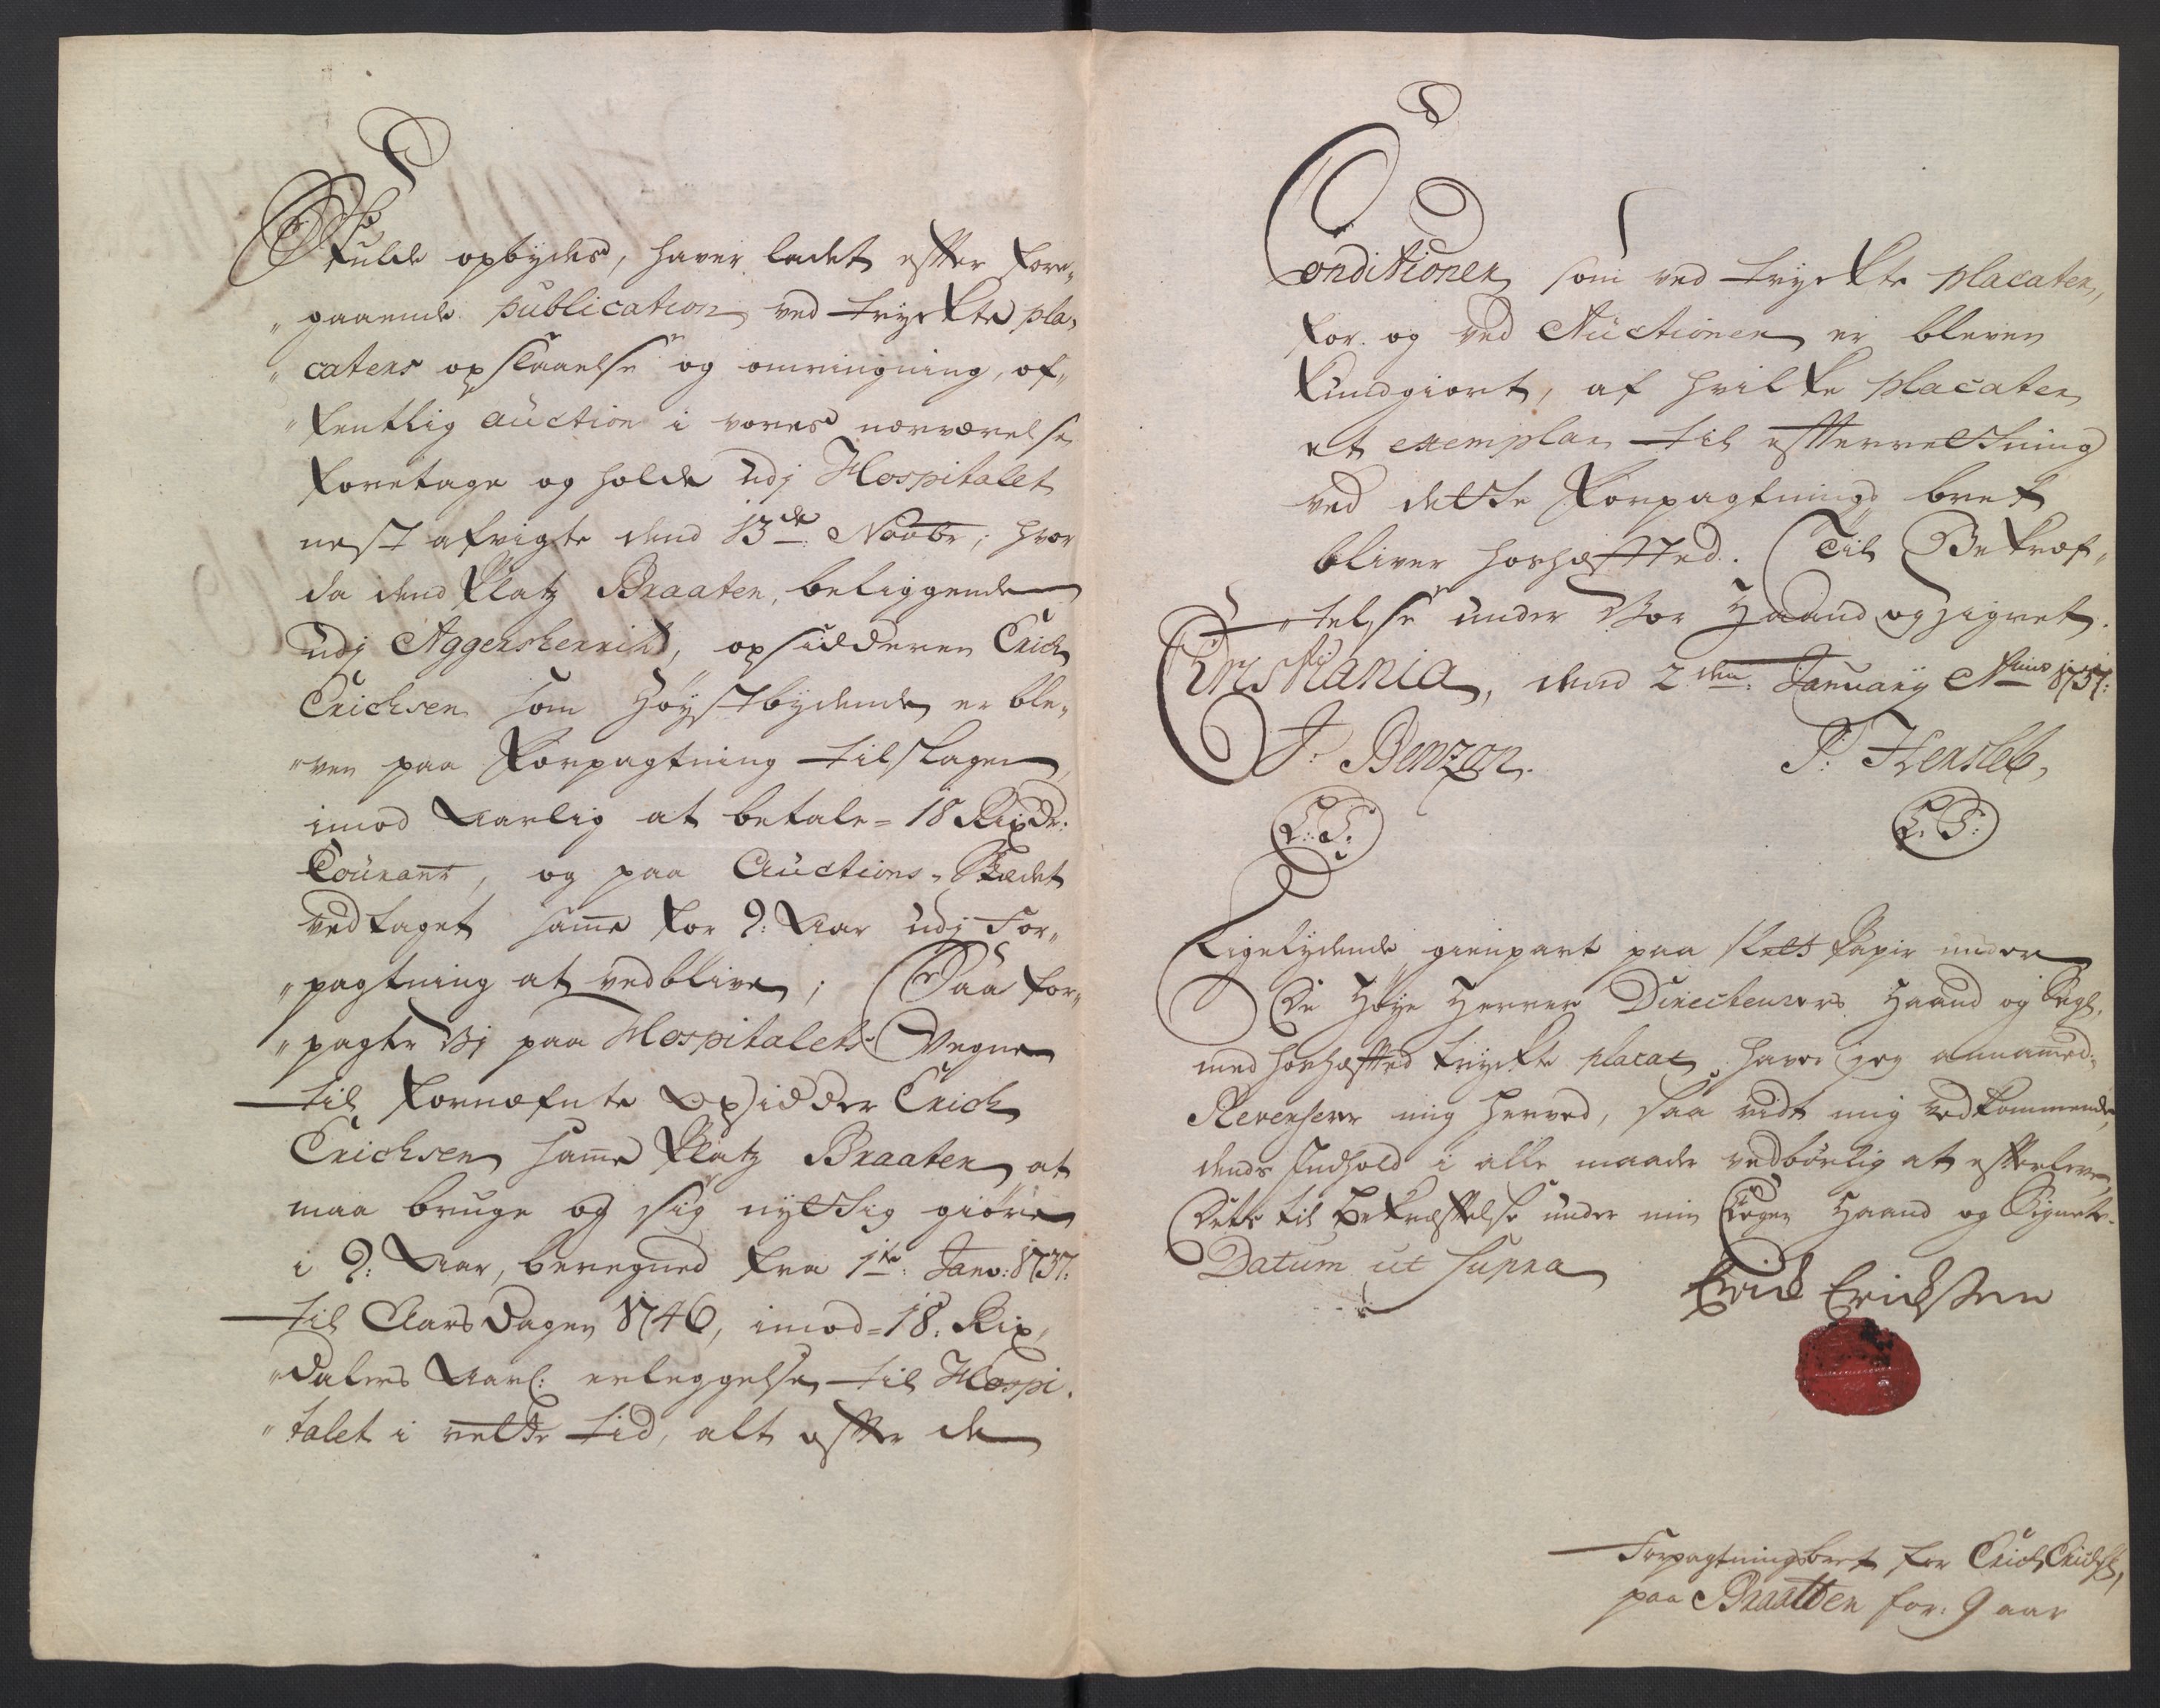 Skulde opbydes, haver ladet effter fore„
„gaaende publication ved tryckte pla„
„caters opslaaelse og omringning, of„
„fentlig auction i vores nærværelse
foretage og holde udj Hospitalet
nest afvigte dend 13de Novbr; hvor
da dend Platz Braaten, beliggende
udj Aggersherrit, opsidderen Erich
Erichsen som Høystbydende er ble„
„ven paa Forpagtning tilslagen,
imod Aarlig at betale = 18 Rixdr:
Courant, og paa Auctions-Stædet
vedtaget samme for 9: Aar udj For„
„pagtning at vedblive; Saa for„
„pagte Vj paa Hospitalets Vegne
til fornæfnte Opsidder Erich
Erichsen samme Platz Braaten, at
maa bruge og sig nyttig giøre
i 9: Aar, beregned fra 1te Janv: 1737:
til Aars Dagen 1746, imod = 18: Rix„
„dalers Aarl: erleggelse til Hospi„
„talet i rette tid, alt effter de
Conditioner, som ved tryckte placater,
for og ved Auctionen er bleven
kundgiort, af hvilke placater
et exemplar til effterrettning
ved dette Forpagtnings bref
bliver hoshæfftted. Til Bekræf„
„telse under Vor Haand og Zignet.
Christiania, dend 2den January Anno 1737:
J: Benzon.
P: Hersleb,
L.S.
L.S.
Ligelydende gienpart paa slett Papir under
De Høye Herrer Directeurers Haand og Segl,
med hoshæffted tryckte placat, haver jeg annammed.
Reverserer mig herved, saa vidt mig vedkommende,
dends Indhold i alle maade vedbørlig at effterleve,
Dette til Bekræfftelse under min Egen Haand og Signete.
Datum ut supra
Erick Erickssen
Forpagtningsbref for Erich Erichs:,
paa Braatten for: 9 aar